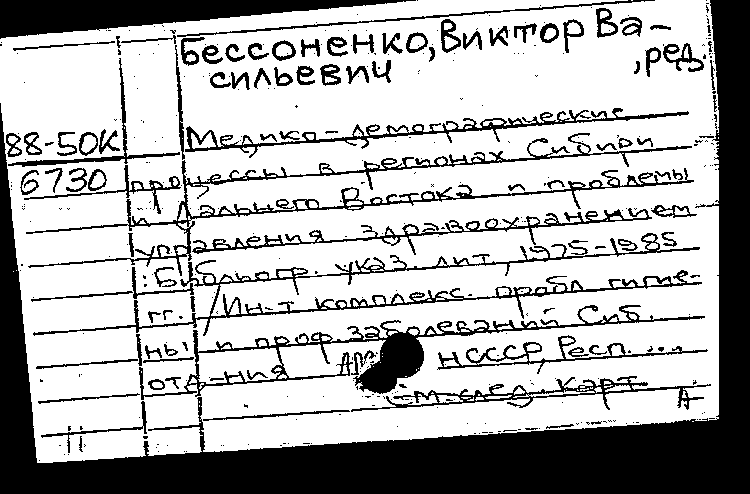 Бессоненко, Виктор Ва-
сильевич
, ред.
88-50К
6730
Медико-демографические
процессы в регионах Сибири
и Дальнего Востока и проблемы
управления здравоохранением
: Библиогр. указ. лит., 1975-1985
гг. / Ин-т комплекс. пробл. гигие-
ны и проф. заболеваний Сиб.
отд-ния НСССР, Респ. ...
См. след. карт.
А
11